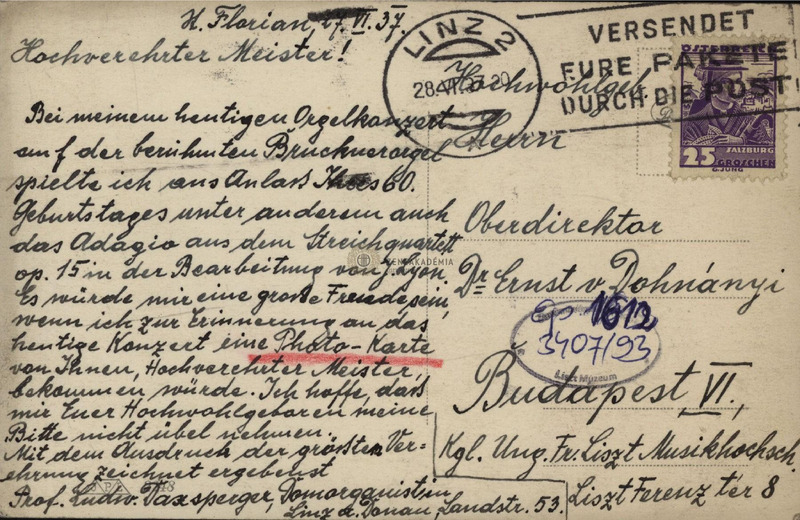 St. Florian, 27. VI. 37.
Hochverehrter Meister!
Bei meinem heutigen Orgelkonzert
auf der berühmten Brucknerorgel
spielte ich aus Anlaß Ihres 60.
Geburtstages unter anderem auch
das Adagio aus dem Streichquartett
op. 15 in der Bearbeitung von J. Lyon.
Es würde mir eine große Freude sein,
wenn ich zur Erinnerung an das
heutige Konzert eine Photo-Karte
von Ihnen, Hochverehrter Meister,
bekommen würde. Ich hoffe, daß
mir Euer Hochwohlgeboren meine
Bitte nicht übel nehmen.
Mit dem Ausdruck der größten Ver-
ehrung zeichnet ergebenst
Prof. Ludw. Daxsperger, Domorganist in
Linz a. Donau, Landstr. 53.
LINZ 2
VERSENDET
EURE PAKETE
DURCH DIE POST
ÖSTERREICH
SALZBURG
25 GROSCHEN
G. JUNG
Hochwohlgeb.
Herrn
Oberdirektor
Dr. Ernst v. Dohnányi
1612
3407/93
Liszt Múzeum
Budapest VI.,
Kgl. Ung. Fr. Liszt Musikhochsch.
Liszt Ferenz tér 8
ZENEAKADÉMIA